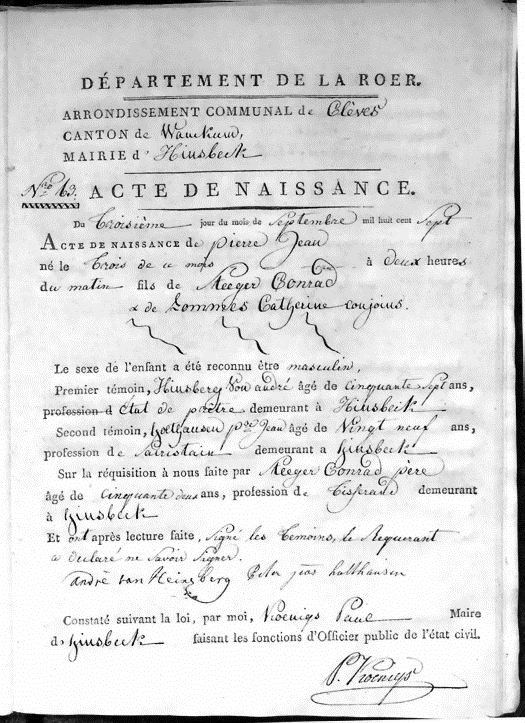 DÉPARTEMENT DE LA ROER.
ARRONDISSEMENT COMMUNAL de Clèves
CANTON de Wanckum,
MAIRIE d' Hinsbeck
Nro 63. ACTE DE NAISSANCE.
Du troisième jour du mois de Septembre mil huit cent Sept
ACTE DE NAISSANCE de pierre Jean
né le trois de ce mois à deux heures
du matin fils de Meeger Conrad
& de Lommes Catherine conjoins.
Le sexe de l'enfant a été reconnu être masculin,
Premier témoin, Hinsberg Von andré âgé de cinquante Sept ans,
profession d État de prêtre demeurant à Hinsbeck
Second témoin, Holthausen pre Jean âgé de Vingt neuf ans,
profession de Sacristain demeurant a hinsbeck
Sur la réquisition à nous faite par Meeger Conrad père
âgé de cinquante deux ans, profession de tisserand demeurant
à hinsbeck
Et ont après lecture faite, signé les temoins, le Requerant
a declaré ne Savoir Signer.
andré van Heinsberg Peter holthausen
Constaté suivant la loi, par moi, Koenigs Paul Maire
d, hinsbeck faisant les fonctions d'Officier public de l'état civil.
P. Koenigs